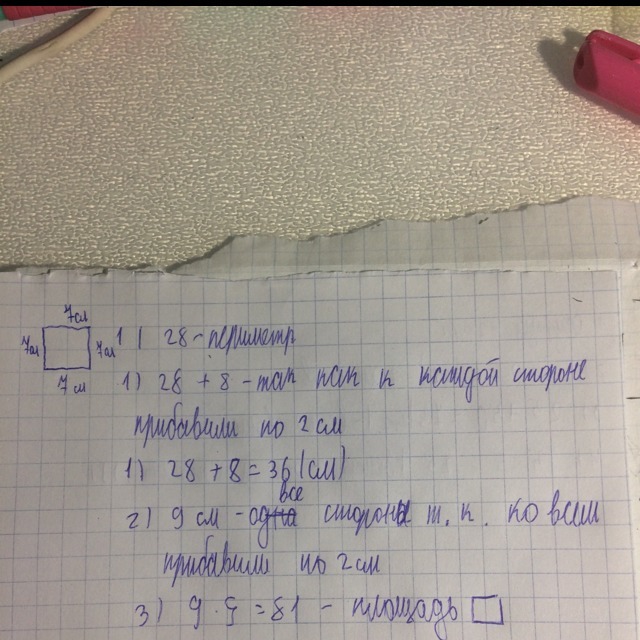 7см
7см 7см
7 см
1) 28 - периметр
1) 28 + 8 - так как к каждой стороне
прибавили по 2 см
1) 28 + 8 = 36 (см)
все
2) 9 см - одна стороны т. к. ко всем
прибавили по 2 см
3) 9 · 9 = 81 - площадь